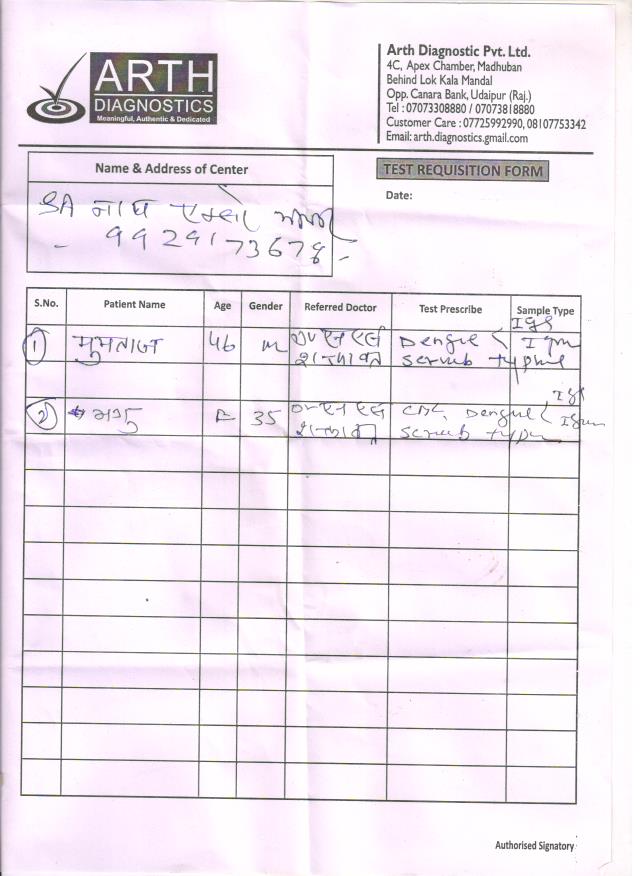 ARTH
DIAGNOSTICS
Meaningful, Authentic & Dedicated
Arth Diagnostic Pvt. Ltd.
4C, Apex Chamber, Madhuban
Behind Lok Kala Mandal
Opp. Canara Bank, Udaipur (Raj.)
Tel : 07073308880 / 07073818880
Customer Care : 07725992990, 08107753342
Email: arth.diagnostics.gmail.com
Name & Address of Center
TEST REQUISITION FORM
Date:
SA नाथ
- 9929173678 -
S.No. Patient Name Age Gender Referred Doctor Test Prescribe Sample Type
1 मुमताज 46 m Dengue < IgG IgM
scrub typhus
2 F 35 CBC, Dengue < IgG IgM
scrub typhus
Authorised Signatory